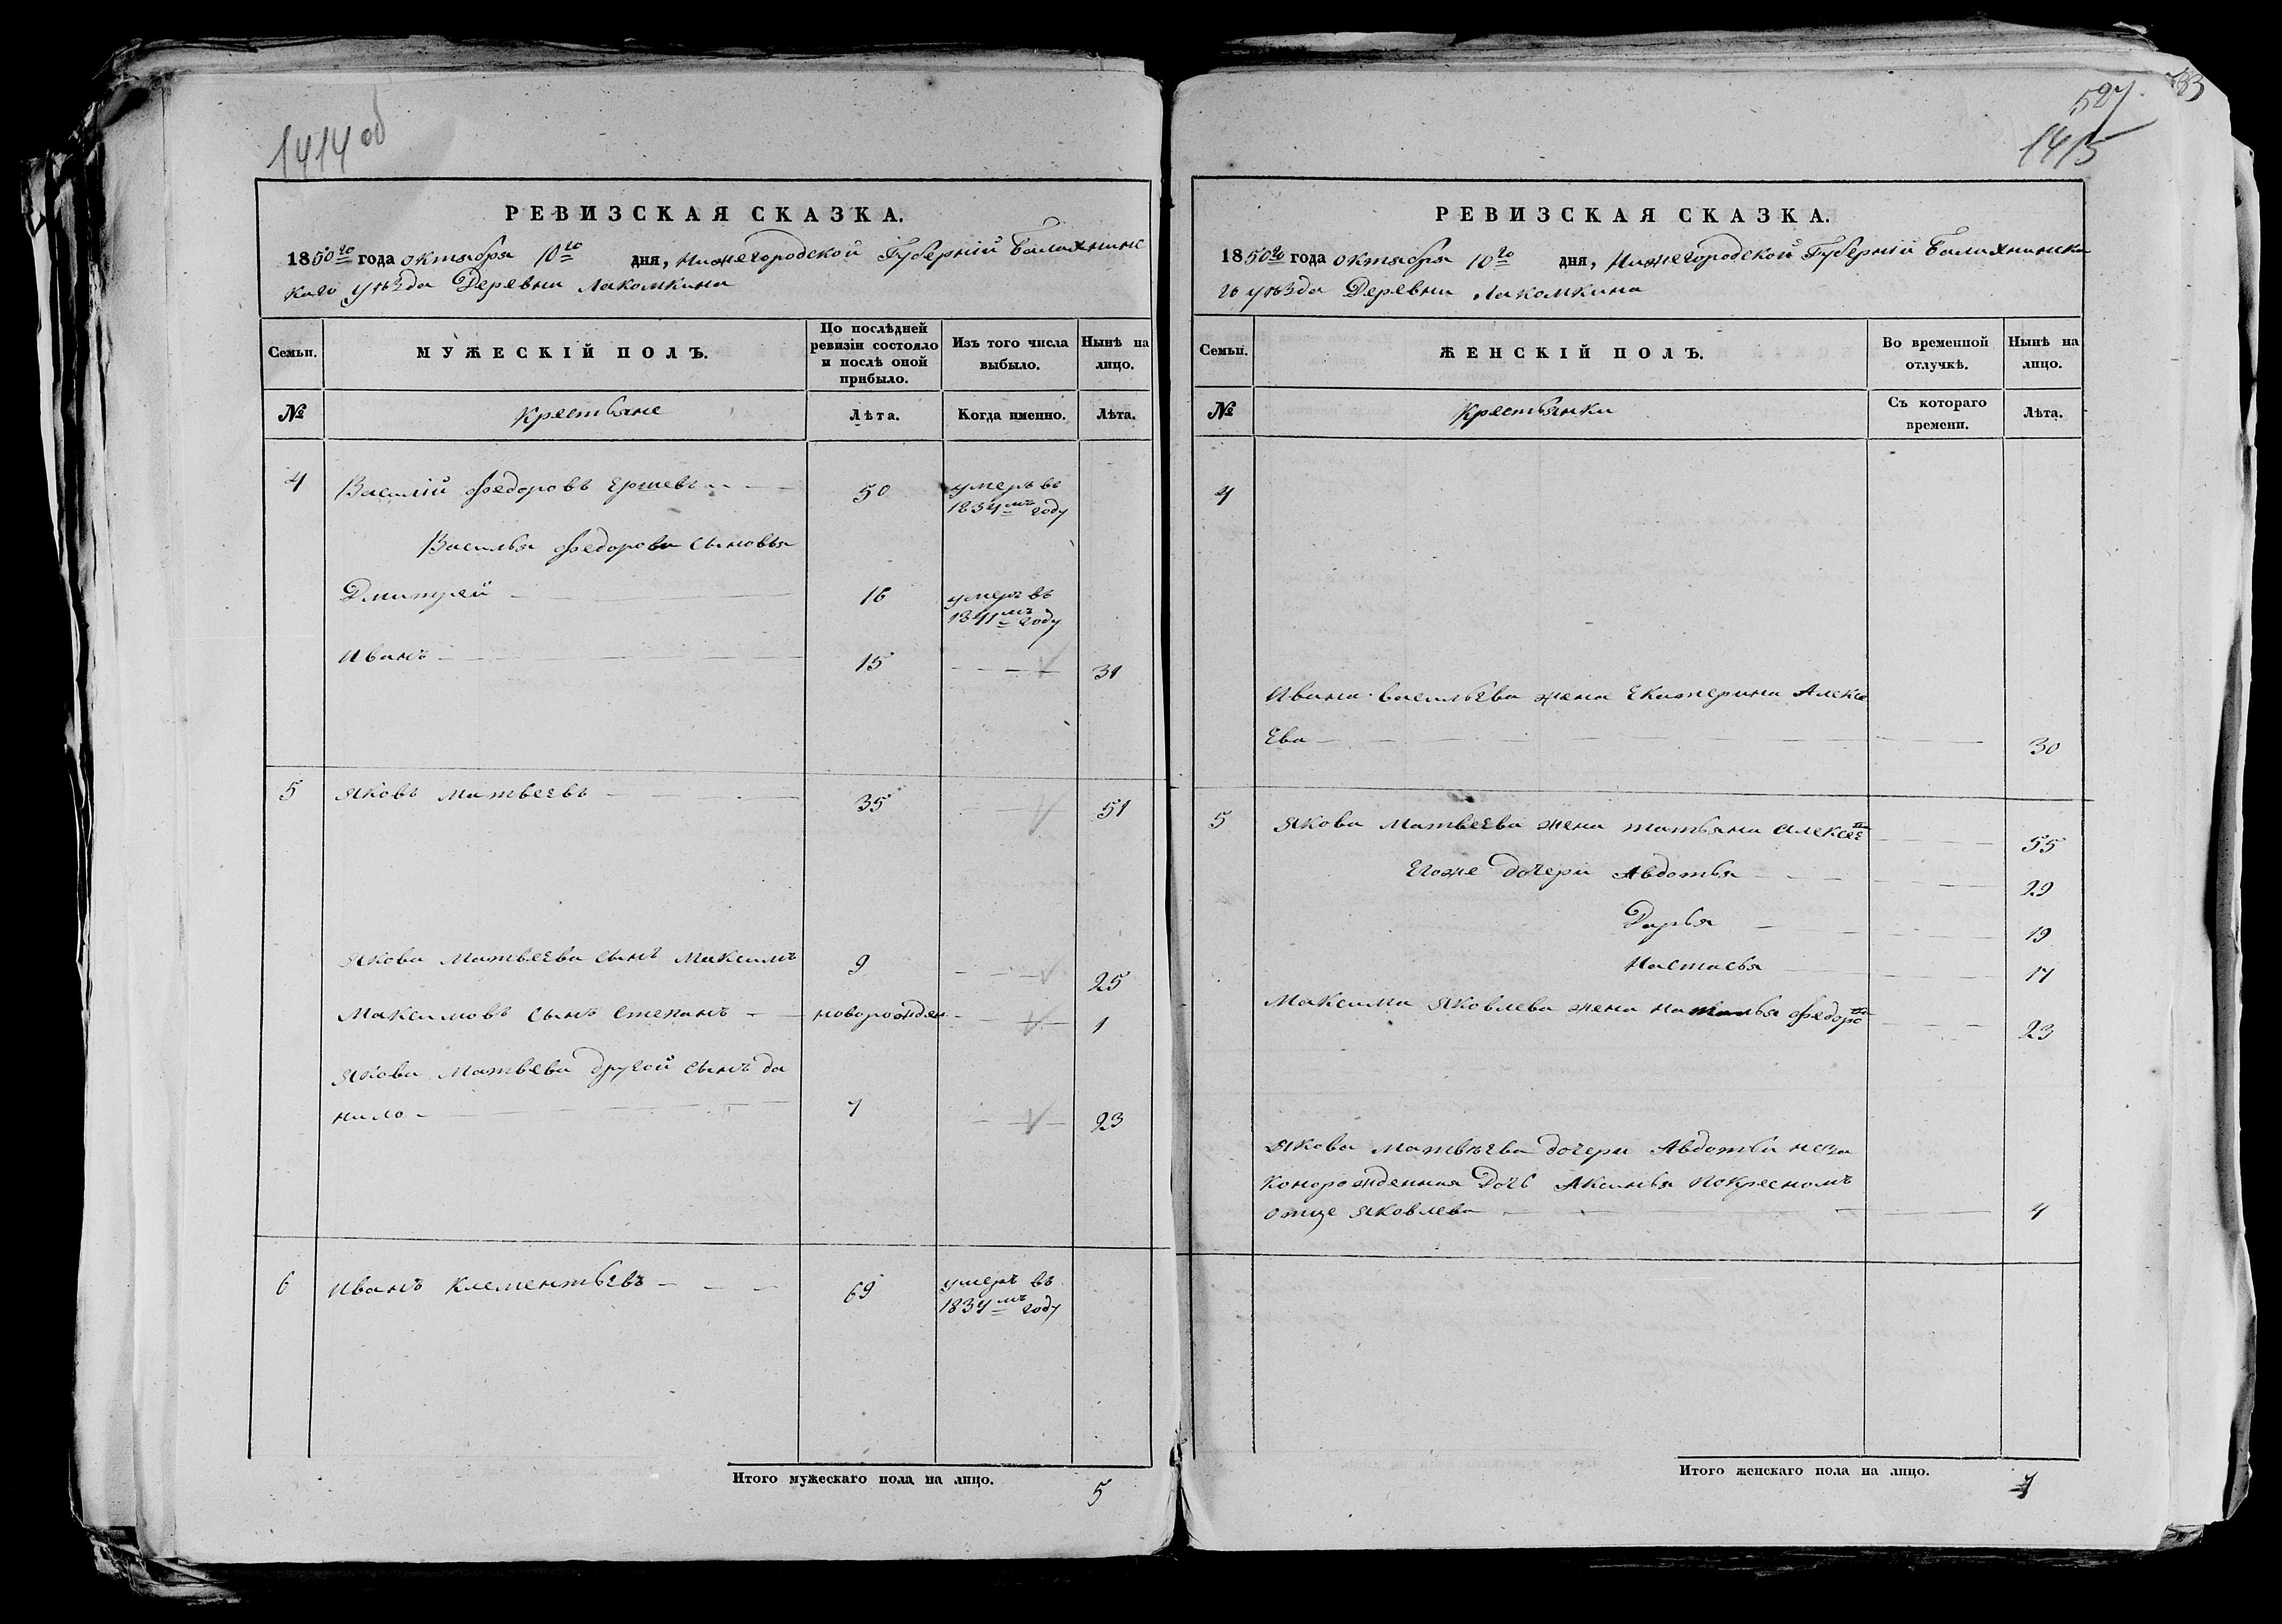 1414 об
РЕВИЗСКАЯ СКАЗКА.
1850го года октября 10го дня, Нижегородской Губерніи Балахнинс
каго уѣзда Деревни Лакомкина
Семьи.
МУЖЕСКІЙ ПОЛЪ.
По послѣдней ревизіи состояло и послѣ оной прибыло.
Изъ того числа выбыло.
Нынѣ на лицо.
№
Крестьяне
Лѣта.
Когда именно.
Лѣта.
4 Василій Федоровъ Ершевъ 50 умеръ въ
1834мъ году
Василья Федорова сыновья
Дмитрей 16 умеръ въ
1841мъ году
Иванъ 15 31
5 Яковъ Матвеевъ 35 51
Якова Матвеева сынъ Максимъ 9 25
Максимовъ сынъ Степанъ новорожден 1
Якова Матвева другой сынъ Да
нило 7 23
6 Иванъ Клементьевъ 69 умеръ въ
1834мъ году
Итого мужескаго пола на лицо. 5
527
1415
РЕВИЗСКАЯ СКАЗКА.
1850го года октября 10го дня, Нижегородской Губерніи Балахнинска
го уѣзда Деревни Лакомкина
Семьи.
ЖЕНСКІЙ ПОЛЪ.
Во временной отлучкѣ.
Нынѣ на лицо.
№
Крестьянки
Съ котораго времени.
Лѣта.
4
Ивана Васильева жена Екатерина Алексе
ева 30
5 Якова Матвеева жена Татьяна Алексеева 55
Егоже дочери Авдотья 29
Дарья 19
Настасья 17
Максима Яковлева жена Наталья Федорова 23
Якова Матвѣева дочери Авдотьи неза
конорожденная Дочь Аксинья покресномъ
отце Яковлева 4
Итого женскаго пола на лицо. 7